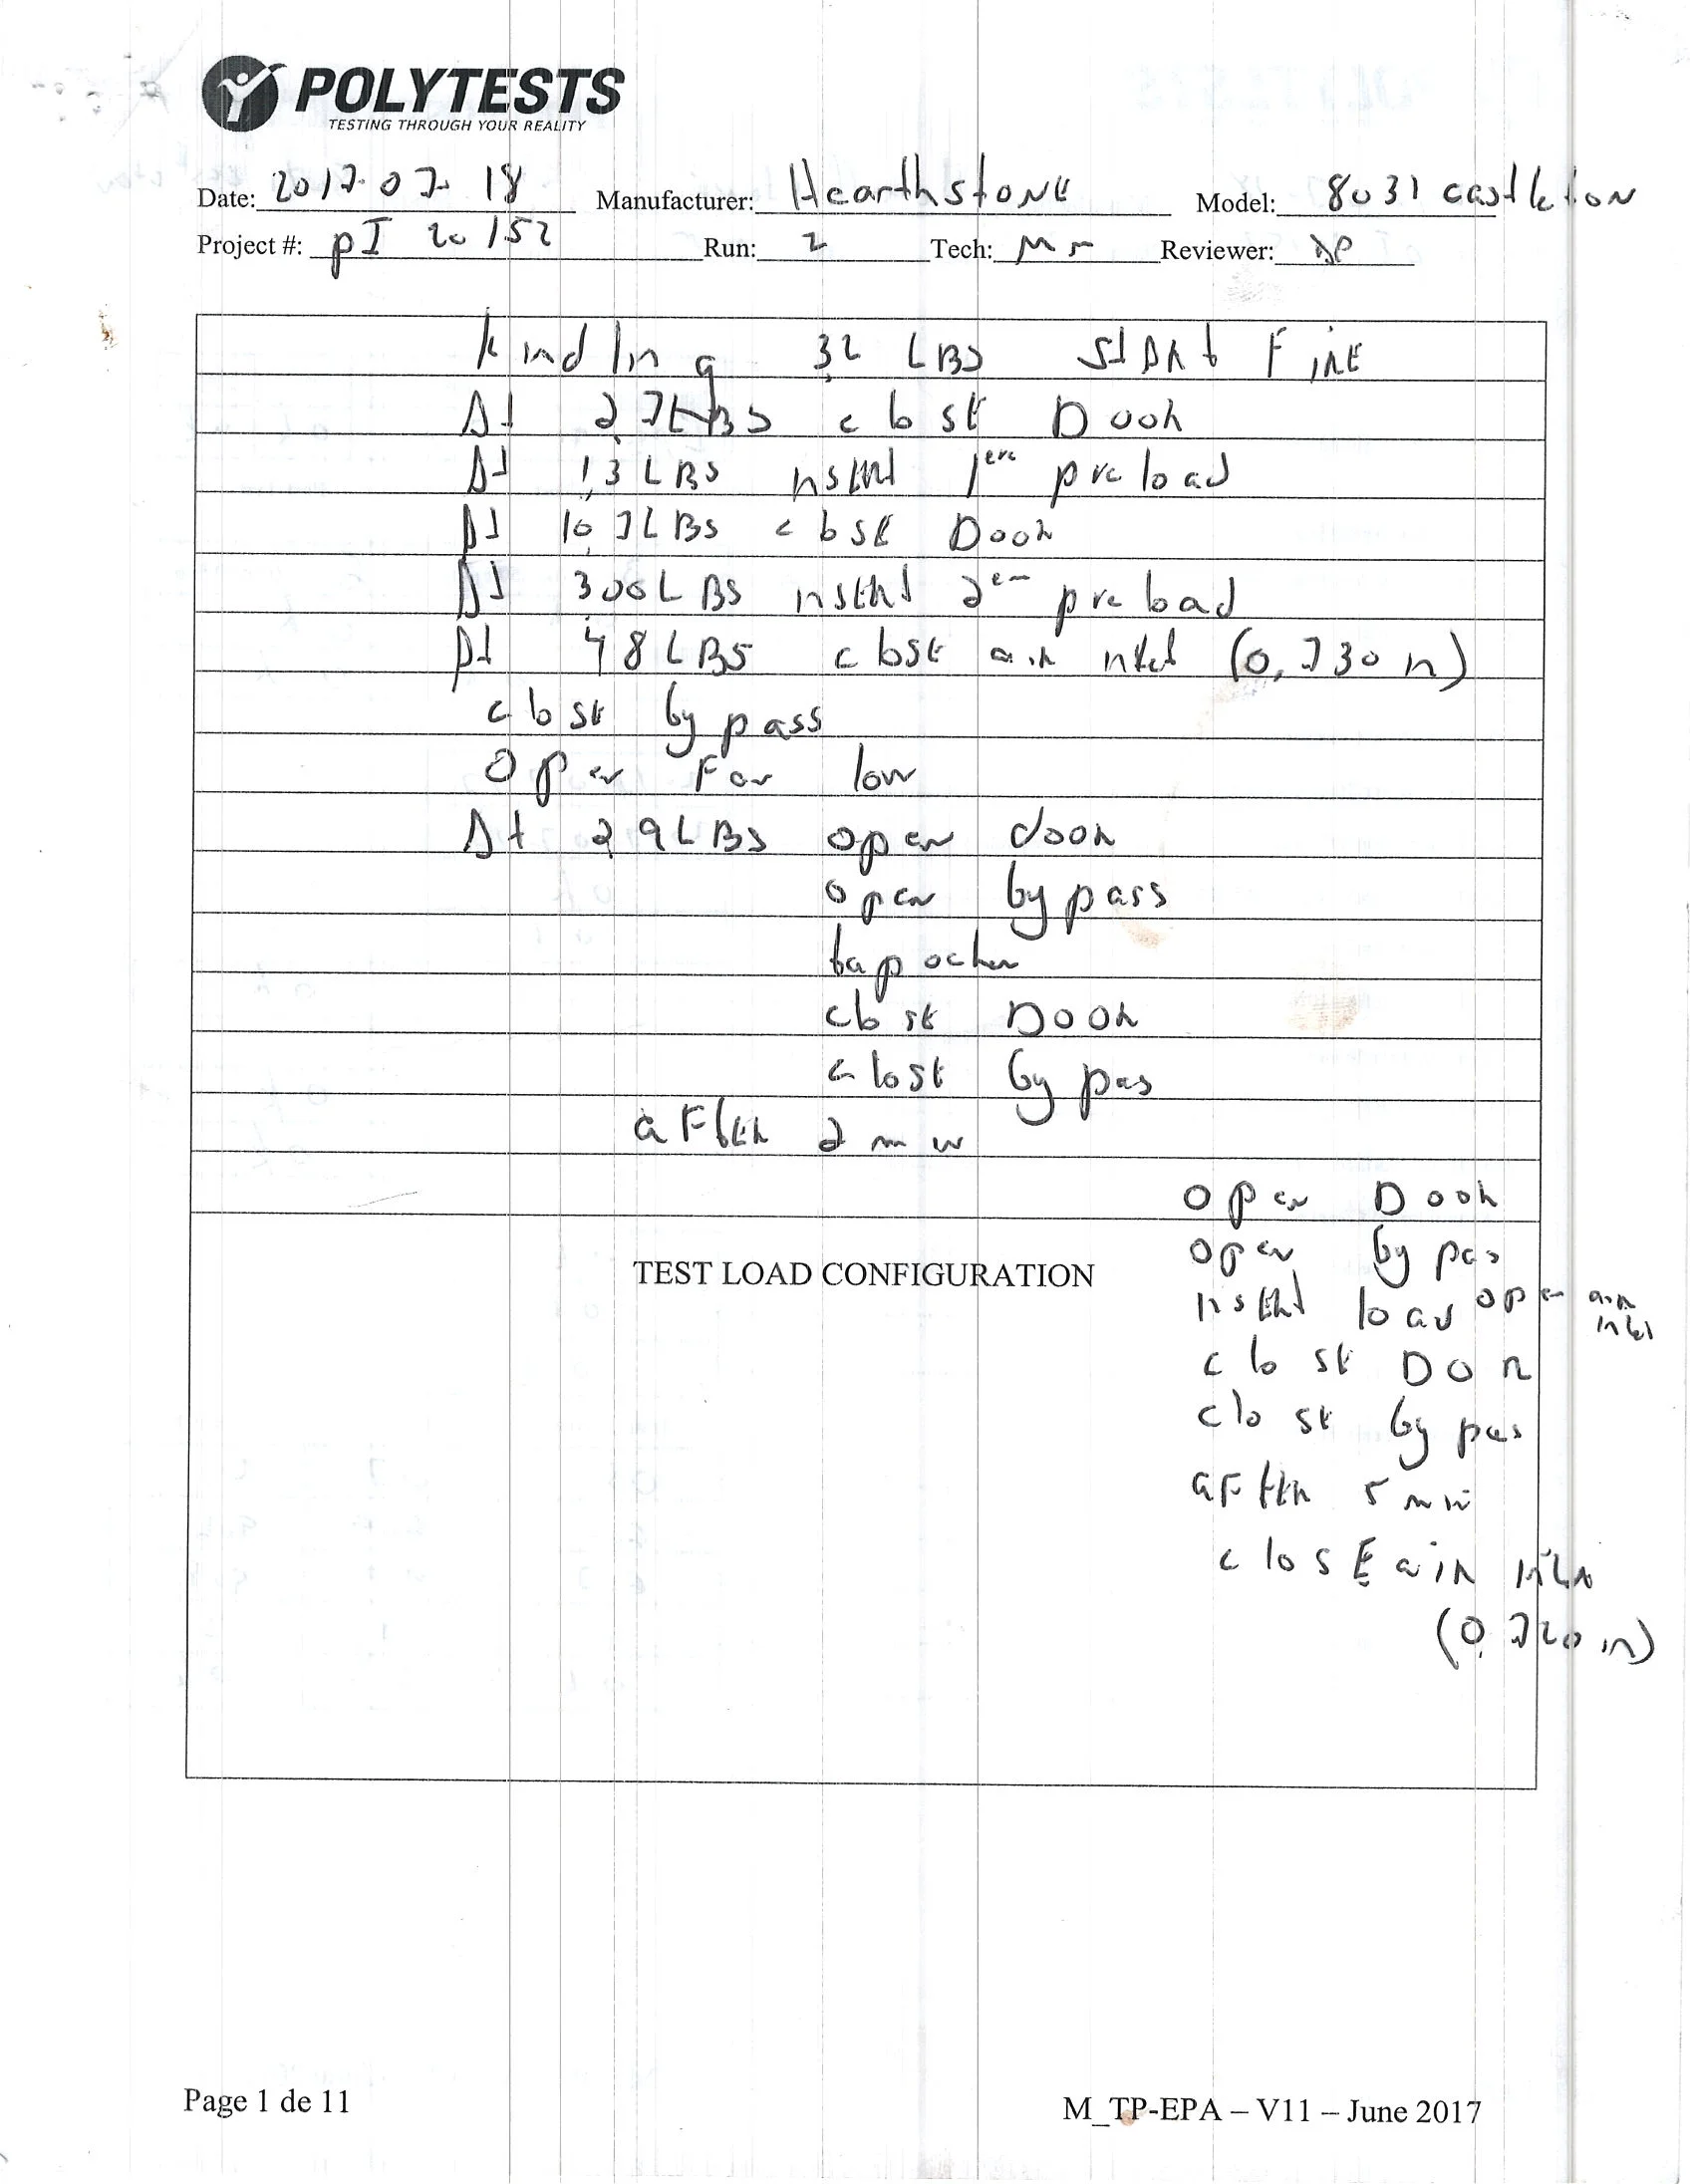 POLYTESTS
TESTING THROUGH YOUR REALITY
Date: 2017-07-18 Manufacturer: Hearthstone Model: 8031 castleton
Project #: pI 20152 Run: 2 Tech: Reviewer:
kindling 3,2 LBS start Fire
At 2,7 LBS close Door
At 1,3 LBS insert 1ere preload
At 10,7 LBS close Door
At 3,00 LBS insert 2em preload
At 4,8 LBS close air inlet (0,730 in)
close bypass
Open Fan low
At 2,9 LBS open door
open bypass
close Door
close by pas
after 2 min
open Door
open by pas
TEST LOAD CONFIGURATION
insert load open air inlet
close Door
close by pas
after 5 min
close air
(0,720 in)
Page 1 de 11
M_TP-EPA – V11 – June 2017